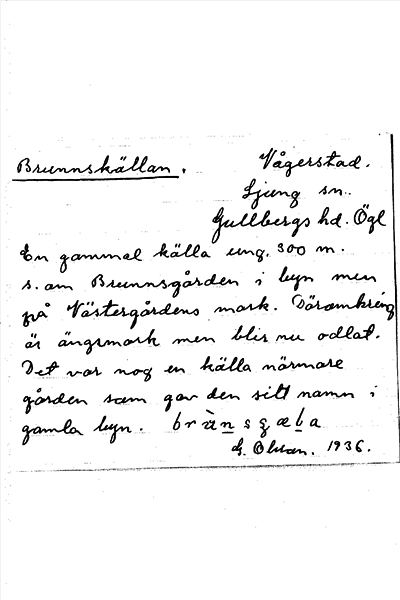 Brunnskällan.
Vågerstad.
Ljung sn.
Gullbergs hd. Ögl
En gammal källa ung. 300 m.
s. om Brunnsgården i byn men
på Västergårdens mark. Däromkring
är ängsmark men blir nu odlat.
Det var nog en källa närmare
gården som gav den sitt namn i
gamla byn.
G. Olson. 1936.